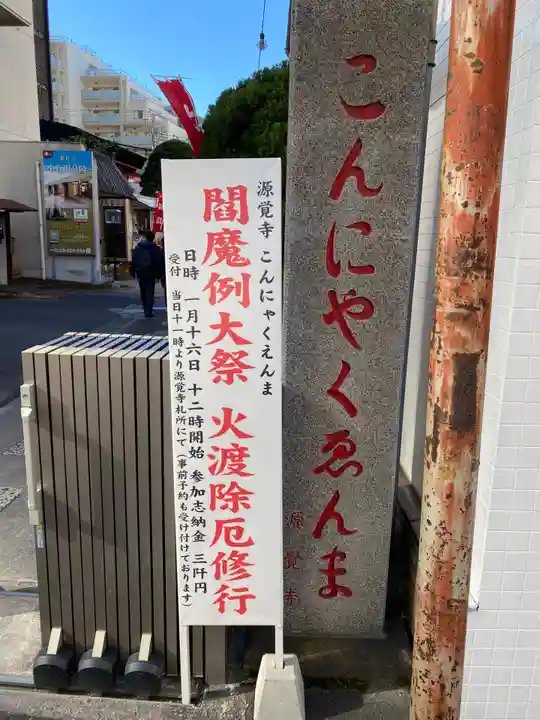 こんにやくゑんま
源覚寺
源覚寺 こんにゃくえんま
閻魔例大祭 火渡除厄修行
日時 一月十六日 十二時開始 参加志納金 三阡円
受付 当日十一時より源覚寺札所にて(事前予約も受け付けております)